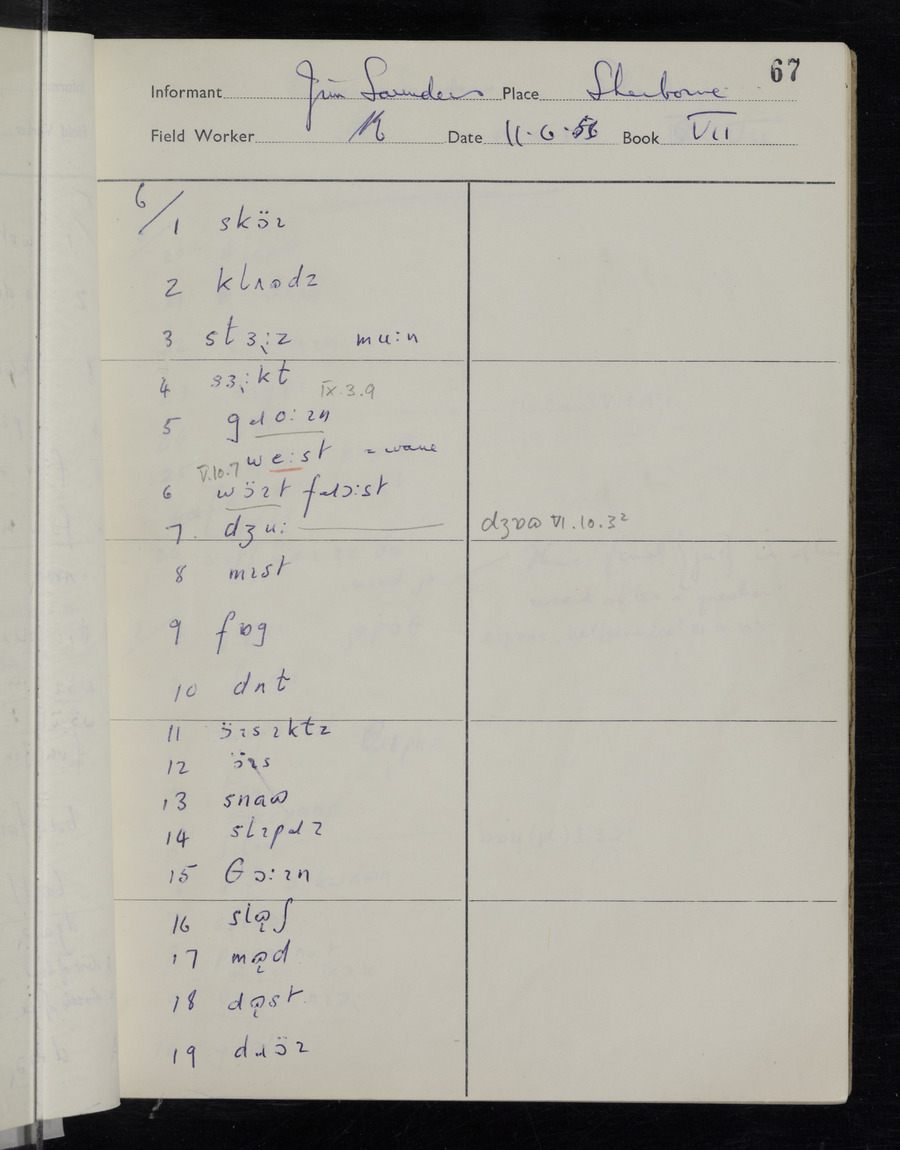 67
Informant Jim Saunders Place Sherborne
Field Worker Date 11·6·56 Book VII
6/1 skɔ̈ɪ
2 klʌɷdz
3 stɜːz muːn
4 sɜːkt IX.3.9
5 gɹoːɪn
weːst = wane
V.10.7
6 wɔ̈ɪt fɹɔːst
7 dʒuː dʒʊɷ VI.10.3²
8 mɪst
9 fɒg
10 dɹɪt
11 ɔ̈ɪsɪktz
12 ɔ̈ɪs
13 snaɷ
14 slɪpɹɪ
15 θɔːɪn
16 slɷʃ
17 mɷd
18 dɷst
19 dɹɔ̈ɪ